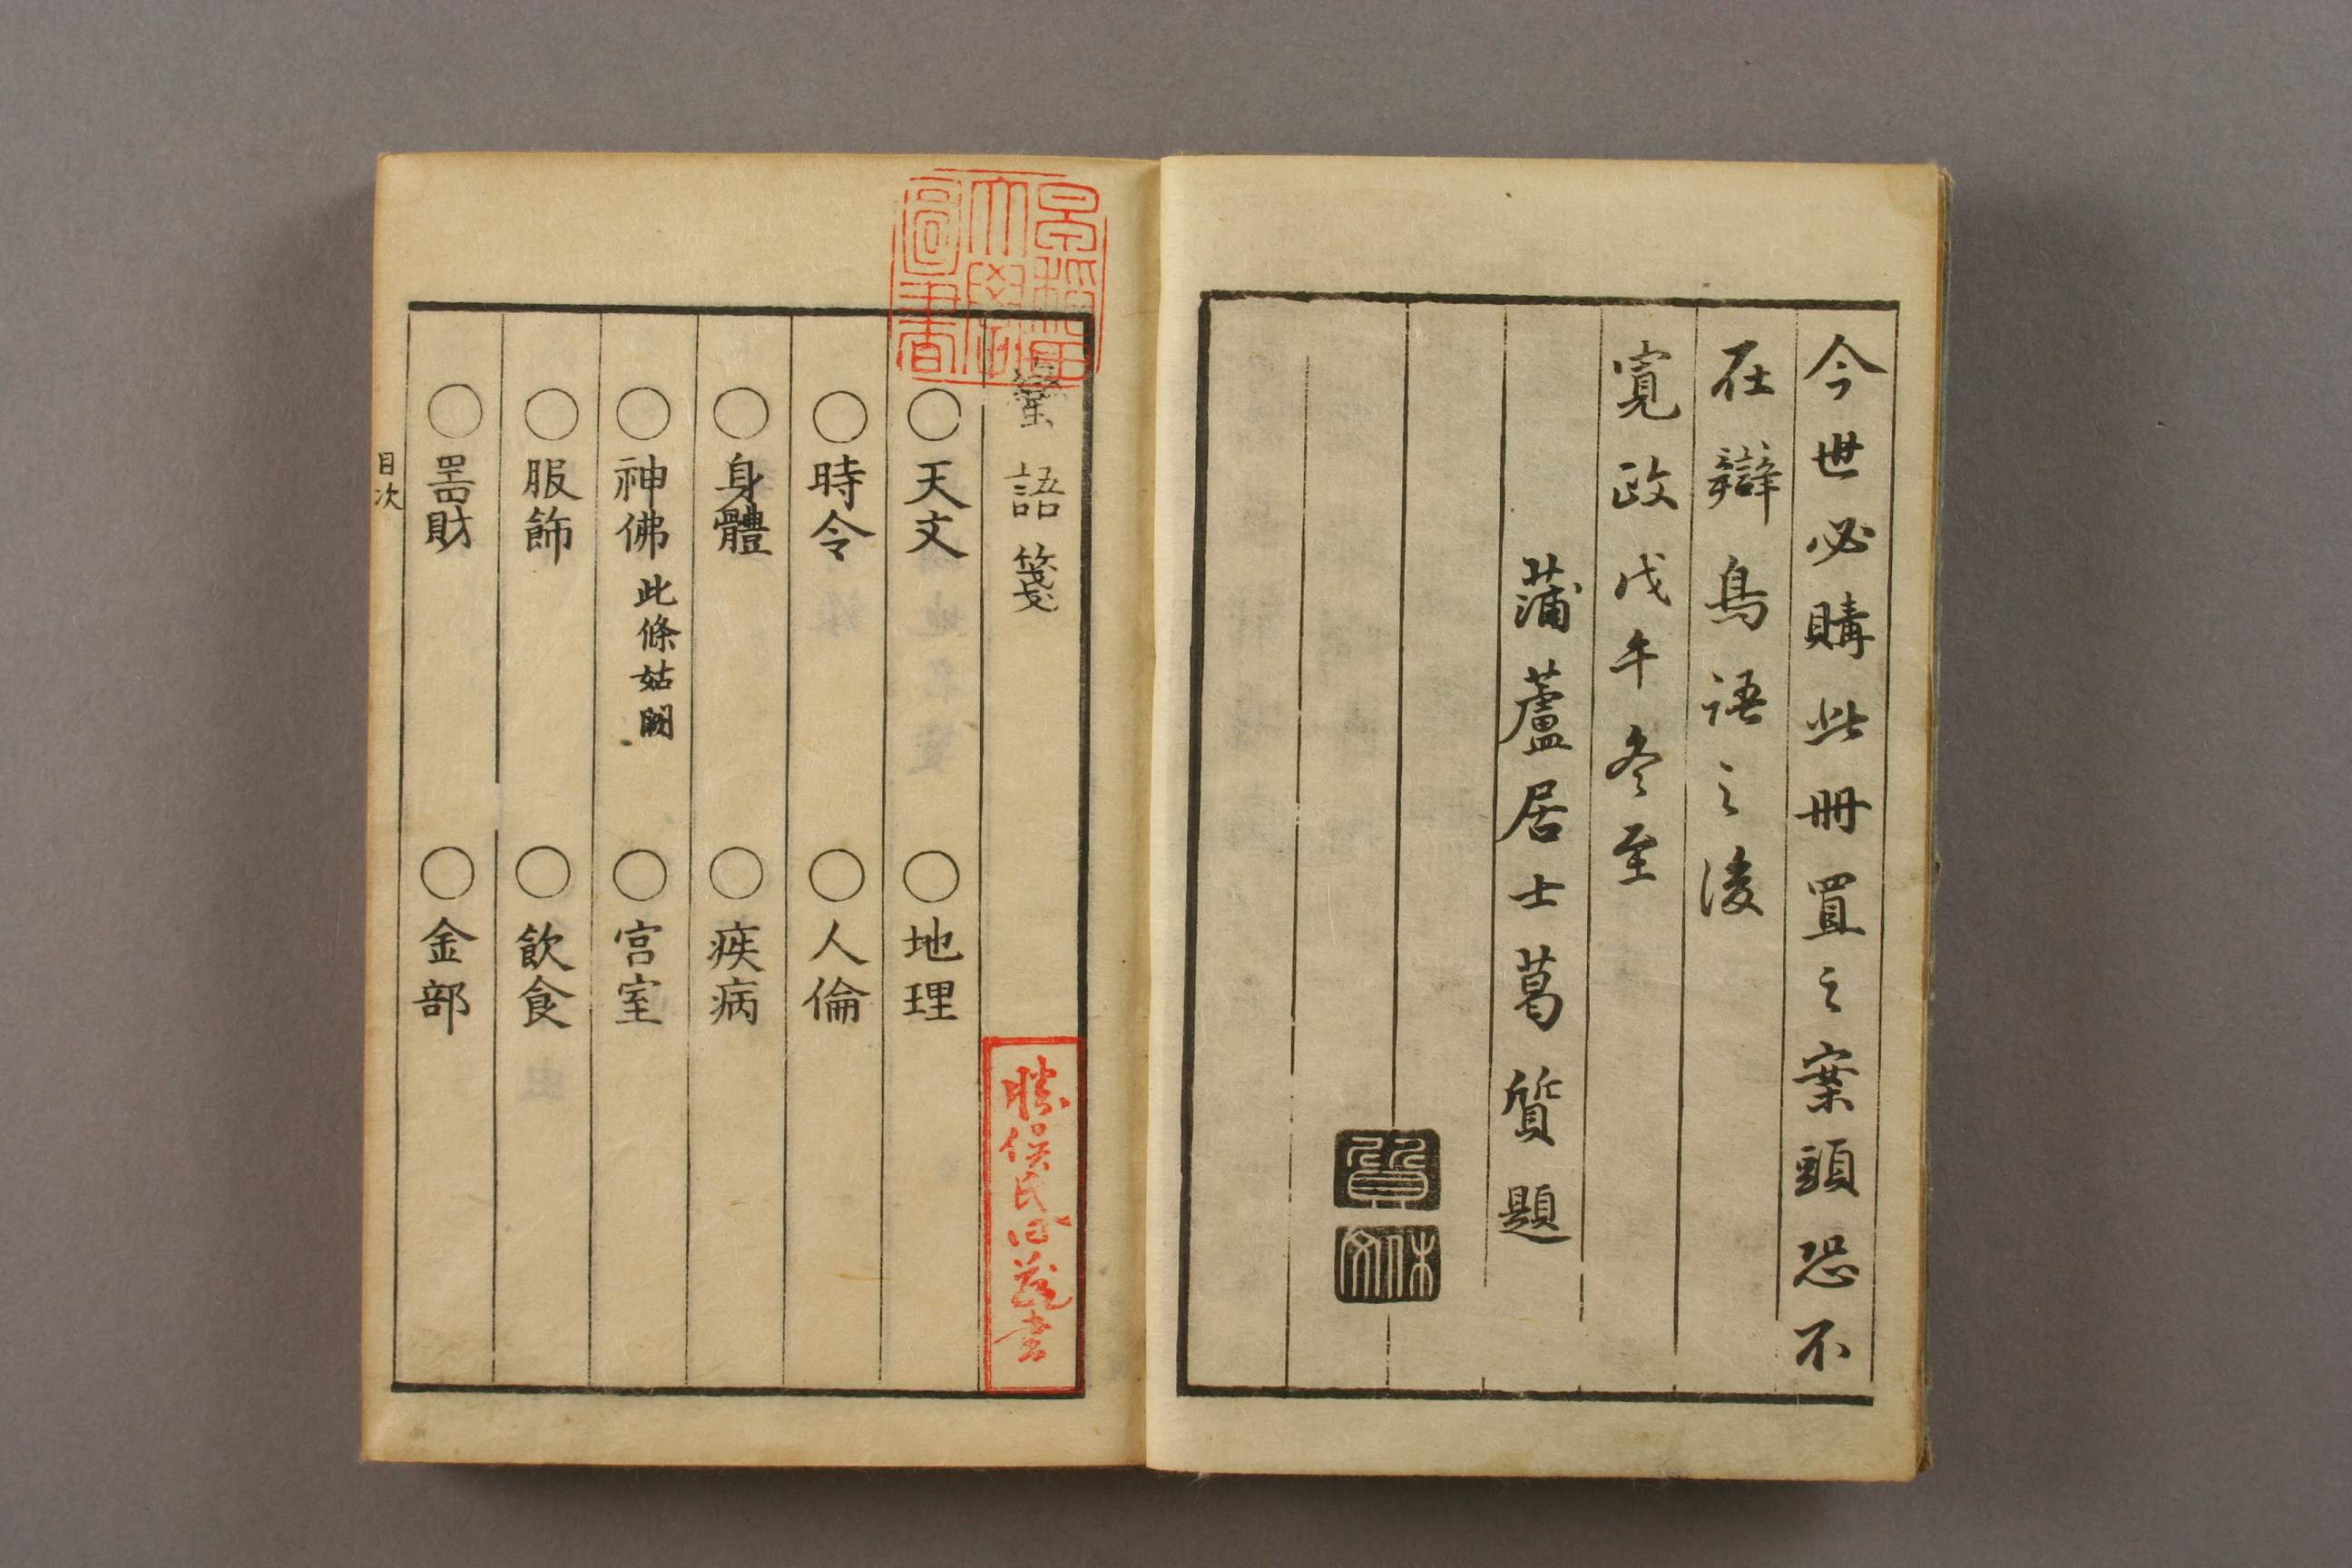 今世必購此册置之案頭恐不
在辯鳥語之後
寛政戊午冬至
蒲蘆居士葛質題
質
休文
早稲田大學圖書
蠻語箋
○天文 ○地理
○時令 ○人倫
○身體 ○疾病
○神佛 此條姑闕 ○宮室
○服飾 ○飲食
○噐財 ○金部
目次